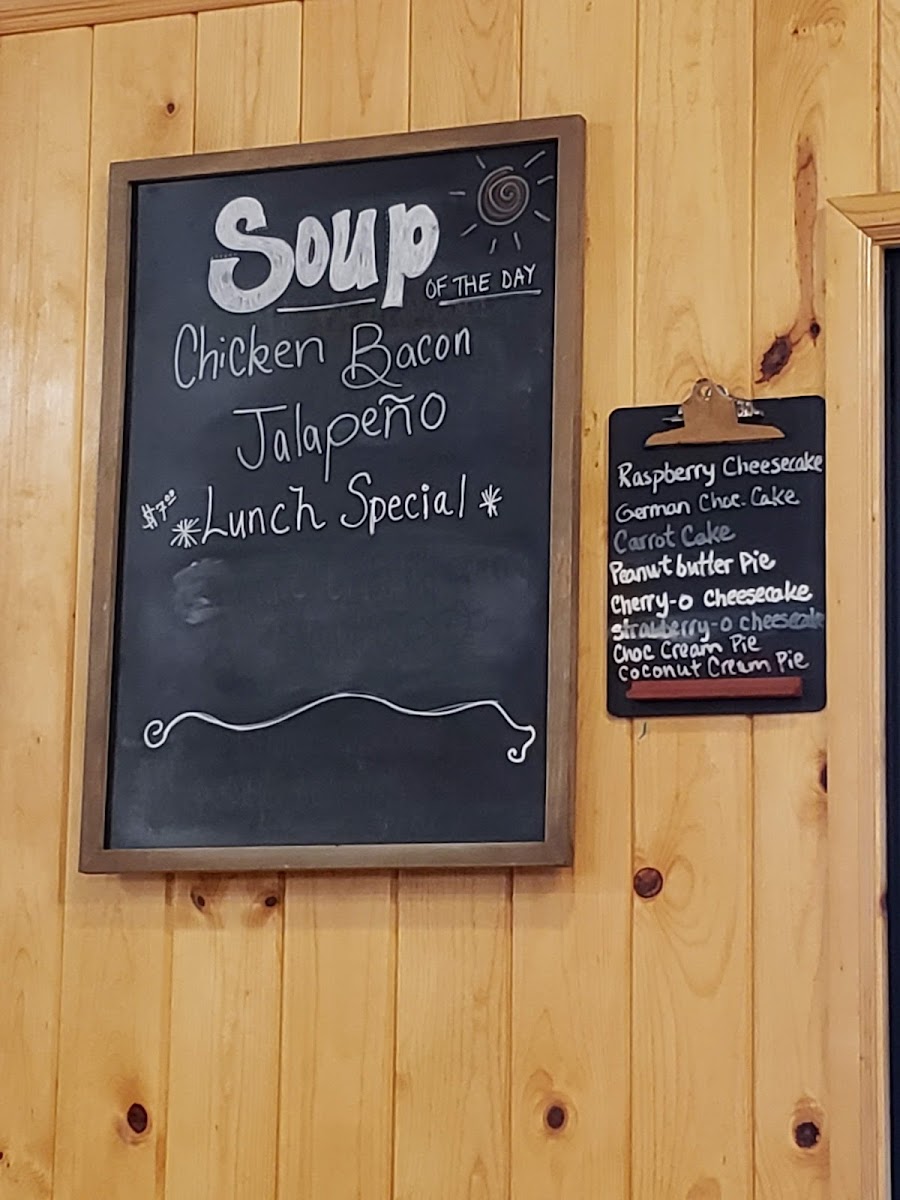 Soup
OF THE DAY
Chicken Bacon
Jalapeño
$7.00 *Lunch Special*
Raspberry Cheesecake
German Choc. Cake
Carrot Cake
Peanut butter Pie
Cherry-o Cheesecake
Strawberry-o cheesecake
Choc Cream Pie
Coconut Cream Pie